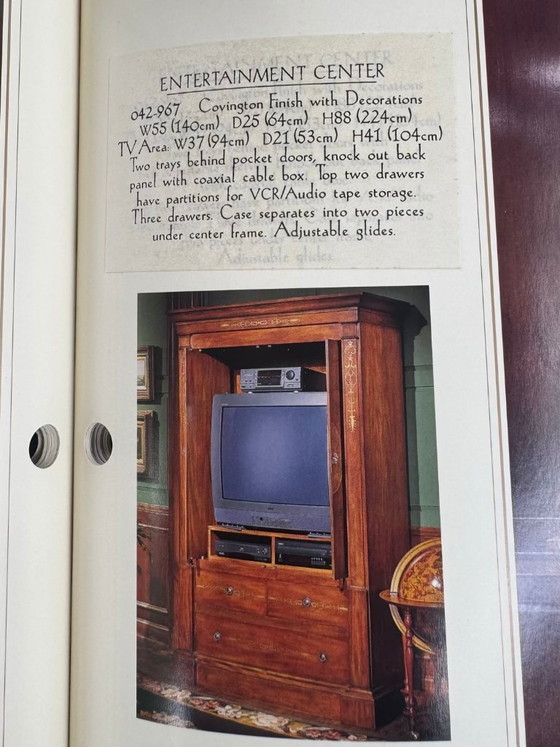 ENTERTAINMENT CENTER
042-967 Covington Finish with Decorations
W55 (140cm) D25 (64cm) H88 (224cm)
TV Area: W37 (94cm) D21 (53cm) H41 (104cm)
Two trays behind pocket doors, knock out back
panel with coaxial cable box. Top two drawers
have partitions for VCR/Audio tape storage.
Three drawers. Case separates into two pieces
under center frame. Adjustable glides.